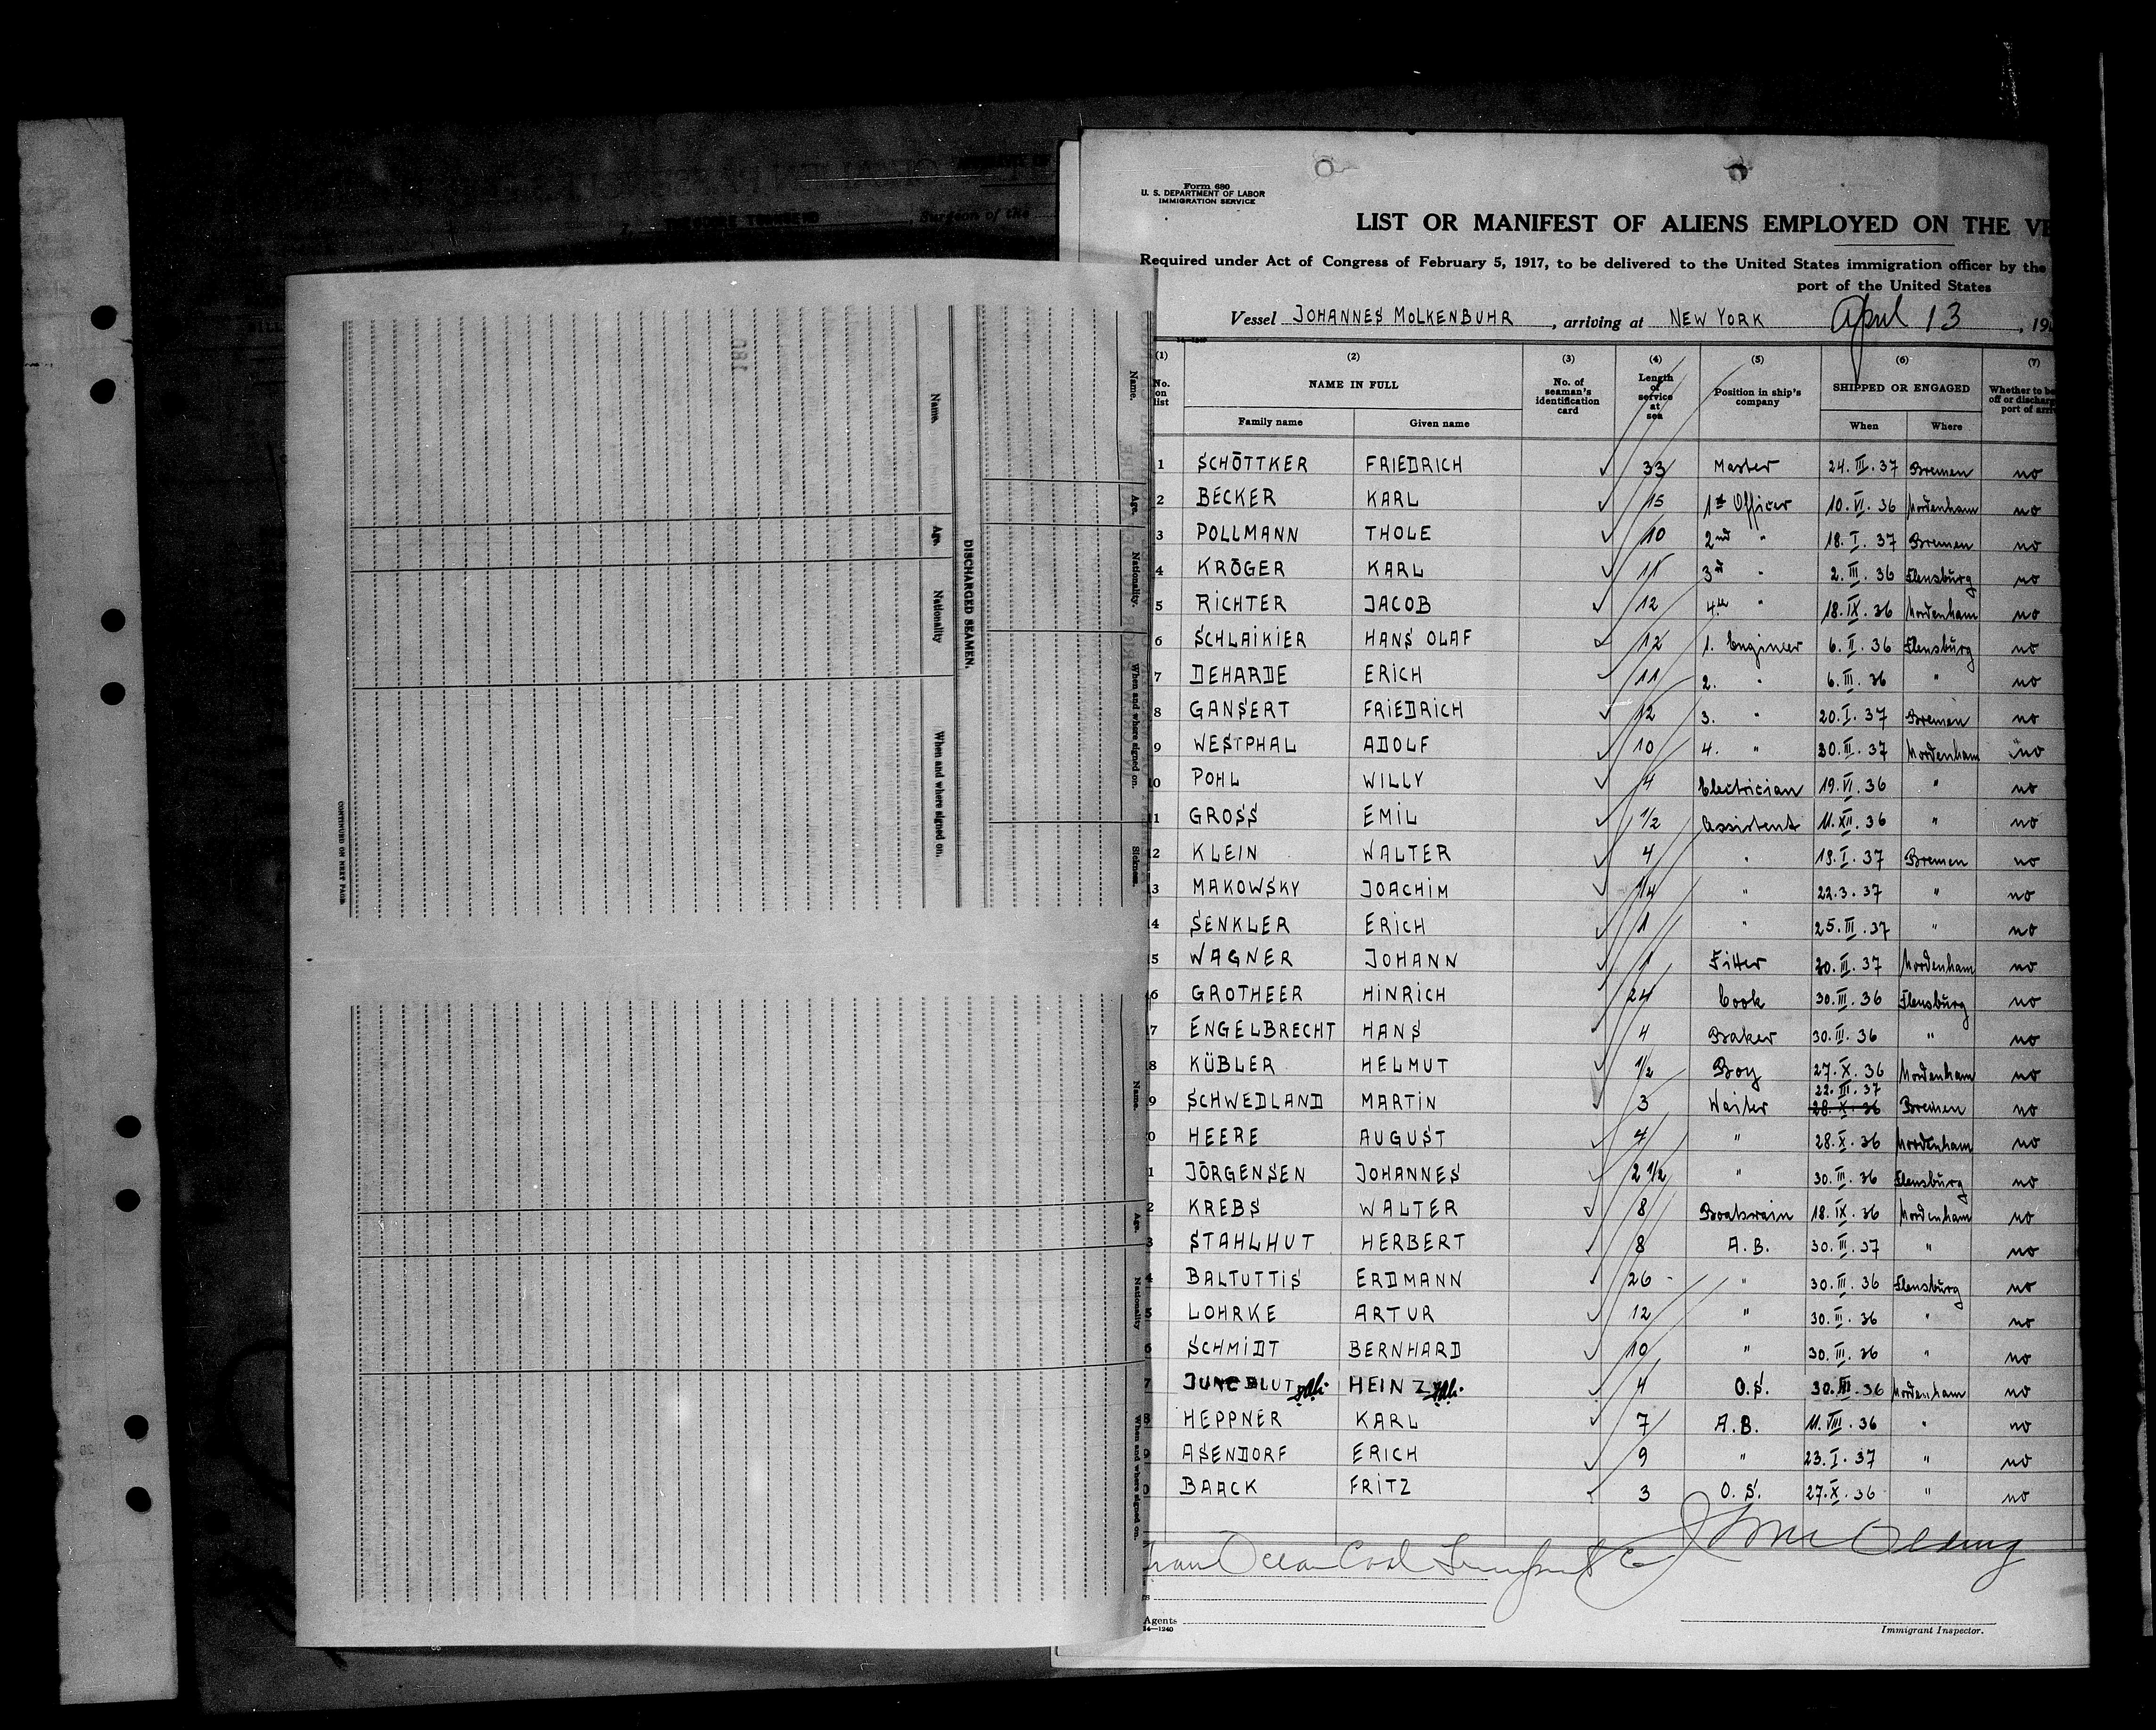 Form 680
U. S. DEPARTMENT OF LABOR
IMMIGRATION SERVICE
LIST OR MANIFEST OF ALIENS EMPLOYED ON THE
Required under Act of Congress of February 5, 1917, to be delivered to the United States immigration officer by the
port of the United States
Vessel JOHANNES MOLKENBUHR , arriving at NEW YORK April 13 , 19
(1) (2) (3) (4) (5) (6) (7)
No. on list NAME IN FULL No. of seaman's identification card Length of service at sea Position in ship's company SHIPPED OR ENGAGED Whether to be
off or
port of
Family name Given name When Where
1 SCHÖTTKER FRIEDRICH 33 Master 24. III. 37 Bremen no
2 BECKER KARL 15 1st Officer 10. VI. 36 Nordenham no
3 POLLMANN THOLE 10 2nd " 18. I. 37 Bremen no
4 KRÖGER KARL 11 3rd " 2. III. 36 Flensburg no
5 RICHTER JACOB 12 4th " 18. IX. 36 Nordenham no
6 SCHLAIKIER HANS OLAF 12 1. Engineer 6. II. 36 Flensburg no
7 DEHARDE ERICH 11 2. " 6. III. 36 " no
8 GANSERT FRIEDRICH 12 3. " 20. I. 37 Bremen no
9 WESTPHAL ADOLF 10 4. " 30. III. 37 Nordenham no
10 POHL WILLY 4 Electrician 19. VI. 36 " no
11 GROSS EMIL 1/2 Assistent 11. XII. 36 " no
12 KLEIN WALTER 4 " 19. I. 37 Bremen no
3 MAKOWSKY JOACHIM 1/4 " 22. 3. 37 " no
4 SENKLER ERICH 1 " 25. III. 37 " no
5 WAGNER JOHANN 1 Fitter 30. III. 37 Nordenham no
6 GROTHEER HINRICH 24 Cook 30. III. 36 Flensburg no
7 ENGELBRECHT HANS 4 Baker 30. III. 36 " no
8 KÜBLER HELMUT 1/2 Boy 27. X. 36 Nordenham no
22. III. 37
9 SCHWEDLAND MARTIN 3 Waiter 28. X. 36 Bremen no
0 HEERE AUGUST 4 " 28. X. 36 Nordenham no
1 JÖRGENSEN JOHANNES 2 1/2 " 30. III. 36 Flensburg no
2 KREBS WALTER 8 Boatswain 18. IX. 36 Nordenham no
3 STAHLHUT HERBERT 8 A.B. 30. III. 37 " no
4 BALTUTTIS ERDMANN 26 " 30. III. 36 Flensburg no
5 LOHRKE ARTUR 12 " 30. III. 36 " no
6 SCHMIDT BERNHARD 10 " 30. III. 36 " no
7 JUNGBLUT HEINZ 4 O.S. 30. III. 36 Nordenham no
8 HEPPNER KARL 7 A.B. 11. VIII. 36 " no
9 ASENDORF ERICH 9 " 23. I. 37 " no
0 BAACK FRITZ 3 O.S. 27. X. 36 " no
Ocean Coal
Agents
14—1240
Immigrant Inspector.
Name. Age. Nationality. When and where signed on. Sickness.
DISCHARGED SEAMEN.
Name. Age. Nationality When and where signed on.
CONTINUED ON NEXT PAGE
Name. Age. Nationality When and where signed on.
Surgeon of the